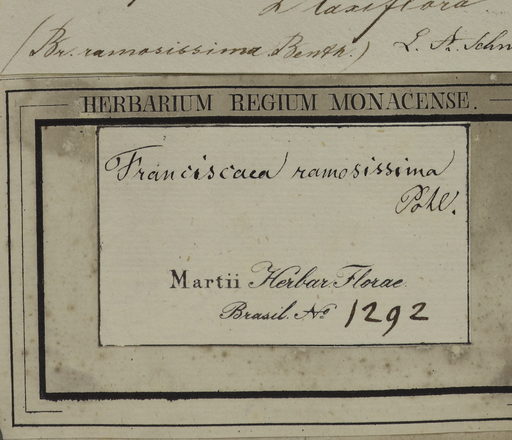 laxiflora.
(Br. ramosissima Benth.)
HERBARIUM REGIUM MONACENSE.
Franciscaea ramosissima
Pohl.
Martii Herbar. Florae
Brasil. No 1292